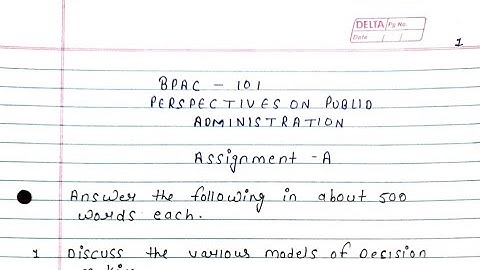 DELTA Pg No.
Date / /
1
BPAC - 101
PERSPECTIVES ON PUBLIC
ADMINISTRATION
Assignment - A
Answer the following in about 500
words each.
1 Discuss the various models of Decision